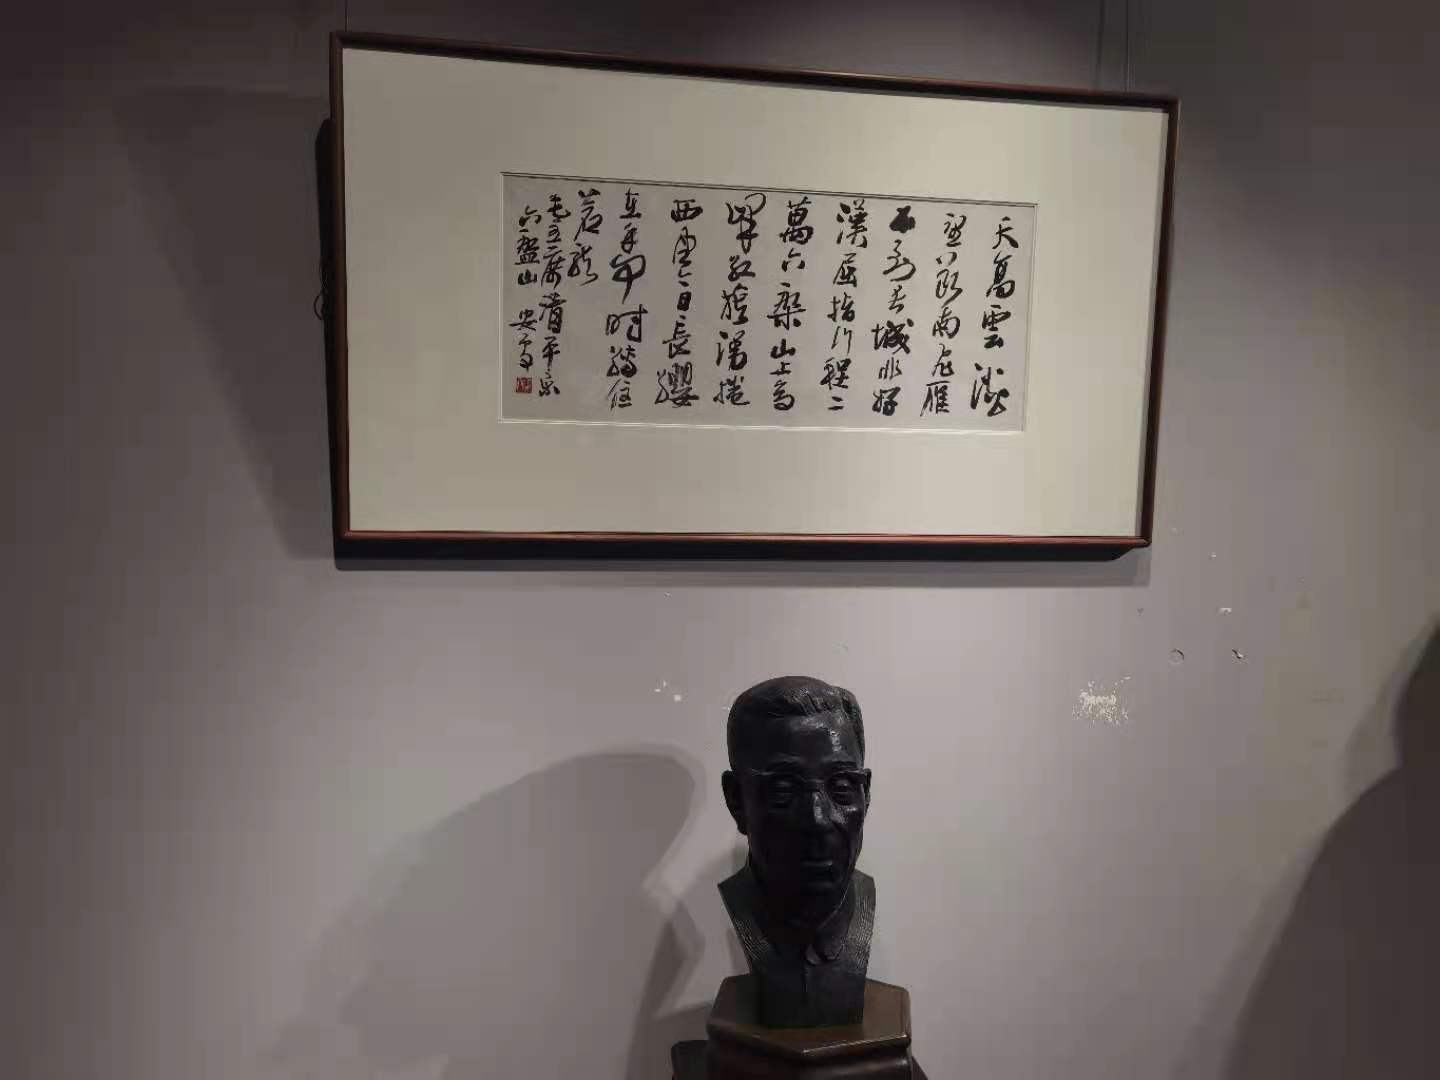 天高雲淡
望斷南飛雁
不到長城非好
漢屈指行程二
萬六槃山上高
峰红旗漫捲
西風今日長纓
在手何时縛住
蒼龍
毛主席清平樂
六盤山